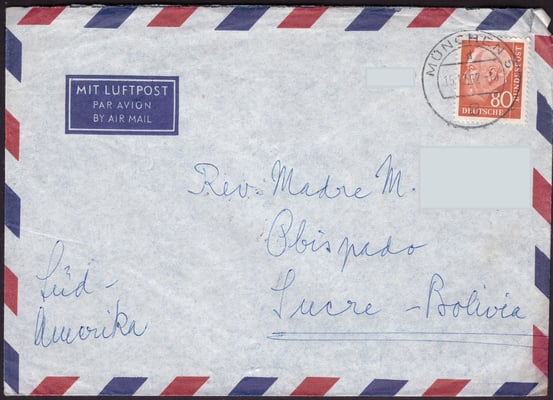 MÜNCHEN 5
80
DEUTSCHE
BUNDESPOST
MIT LUFTPOST
PAR AVION
BY AIR MAIL
Rev. Madre M.
Obispado
Sucre - Bolivia
Süd-
Amerika